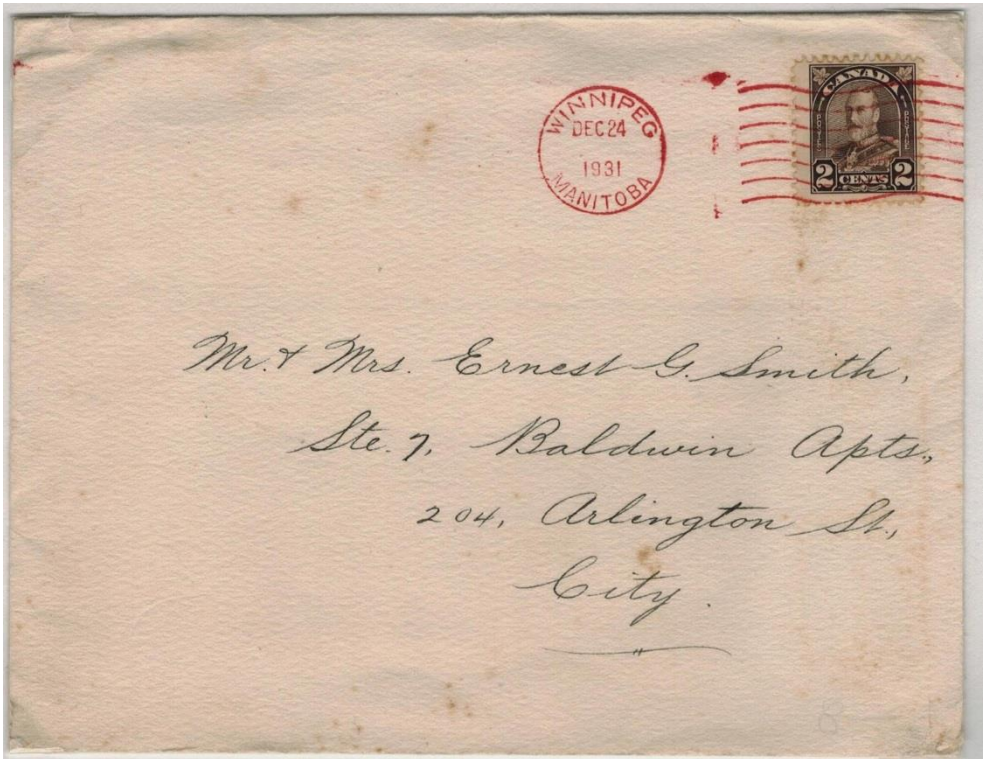 WINNIPEG
DEC 24
1931
MANITOBA
CANADA
POSTES POSTAGE
2 CENTS 2
Mr. & Mrs. Ernest G. Smith,
Ste. 7, Baldwin Apts.,
204, Arlington St.,
City.